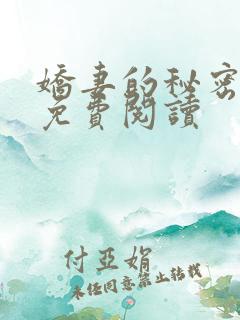 嬌妻的秘密
免費閱讀
付亞娟
未經同意禁止轉載